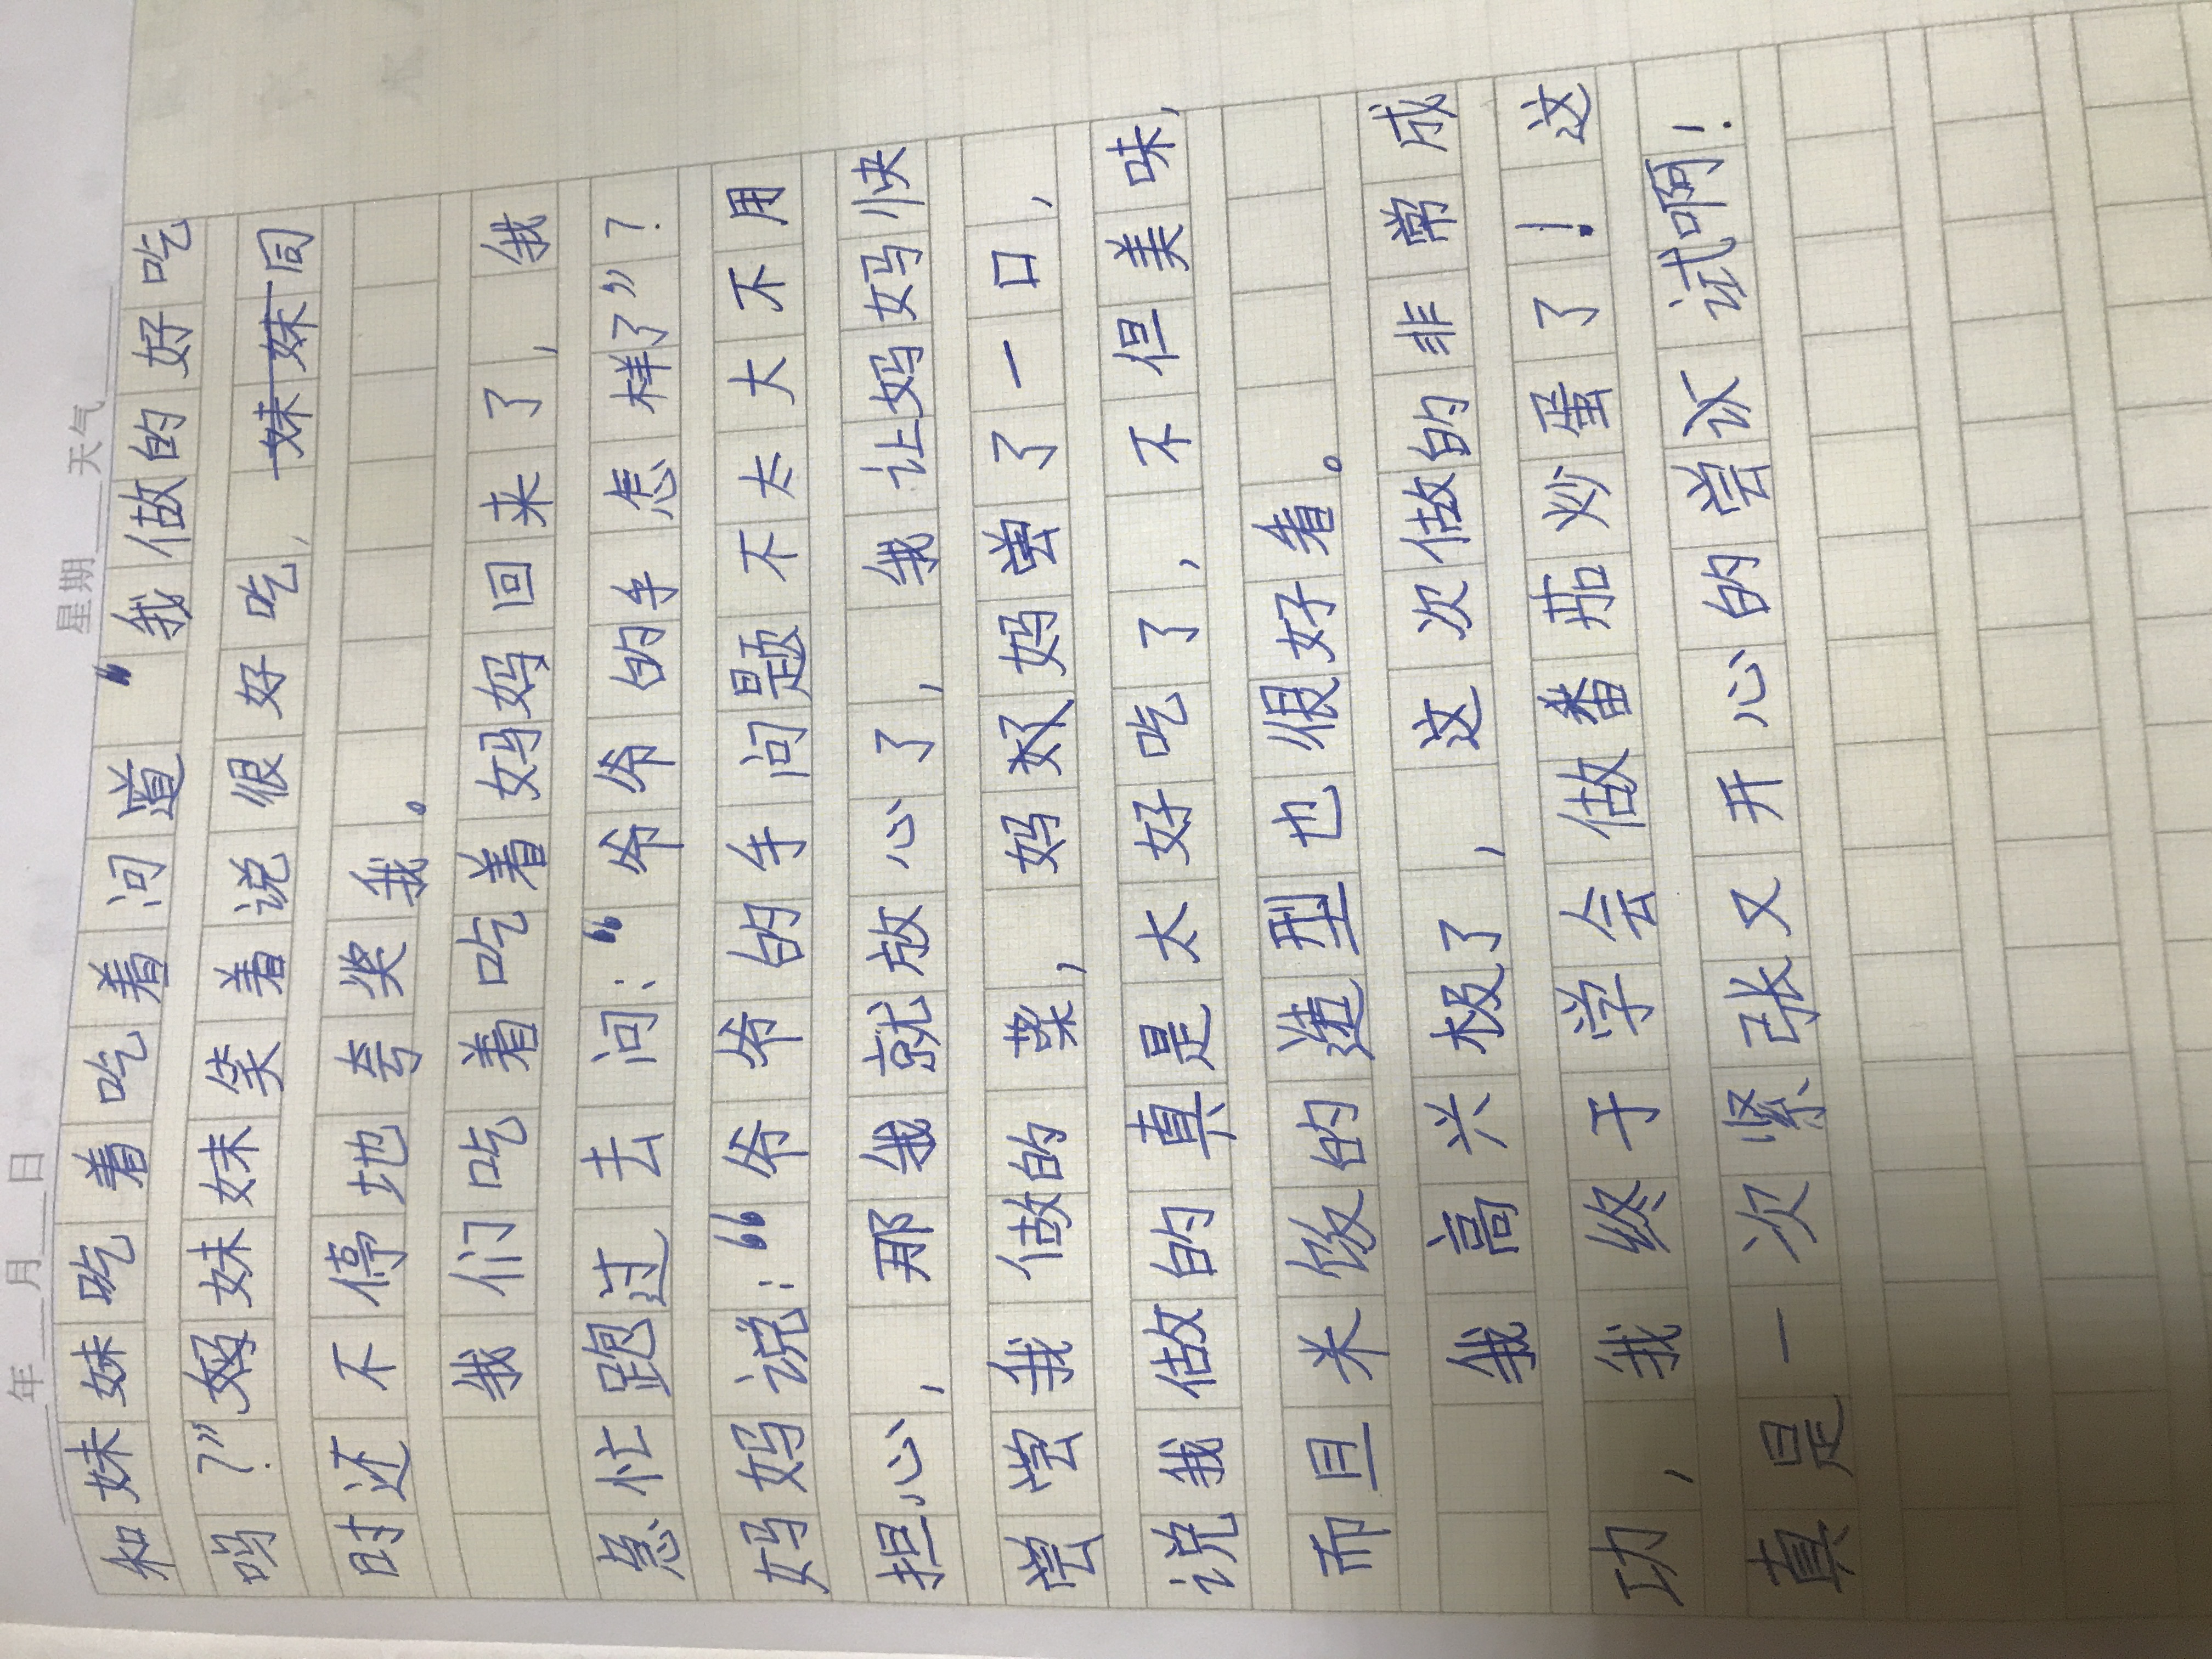 年 月 日 星期 天气
和妹妹吃着吃着问道“我做的好吃
吗?”妹妹笑着说很好吃,同
时还不停地夸奖我。
我们吃着吃着妈妈回来了,我
急忙跑过去问:“爷爷的手怎样了”?
妈妈说:“爷爷的手问题不太大不用
担心,那我就放心了,我让妈妈快
尝尝我做的菜,妈妈尝了一口,
说我做的真是太好吃了,不但美味,
而且米饭的造型也很好看。
我高兴极了,这次做的非常成
功,我终于学会做番茄炒蛋了!这
真是一次紧张又开心的尝试啊!